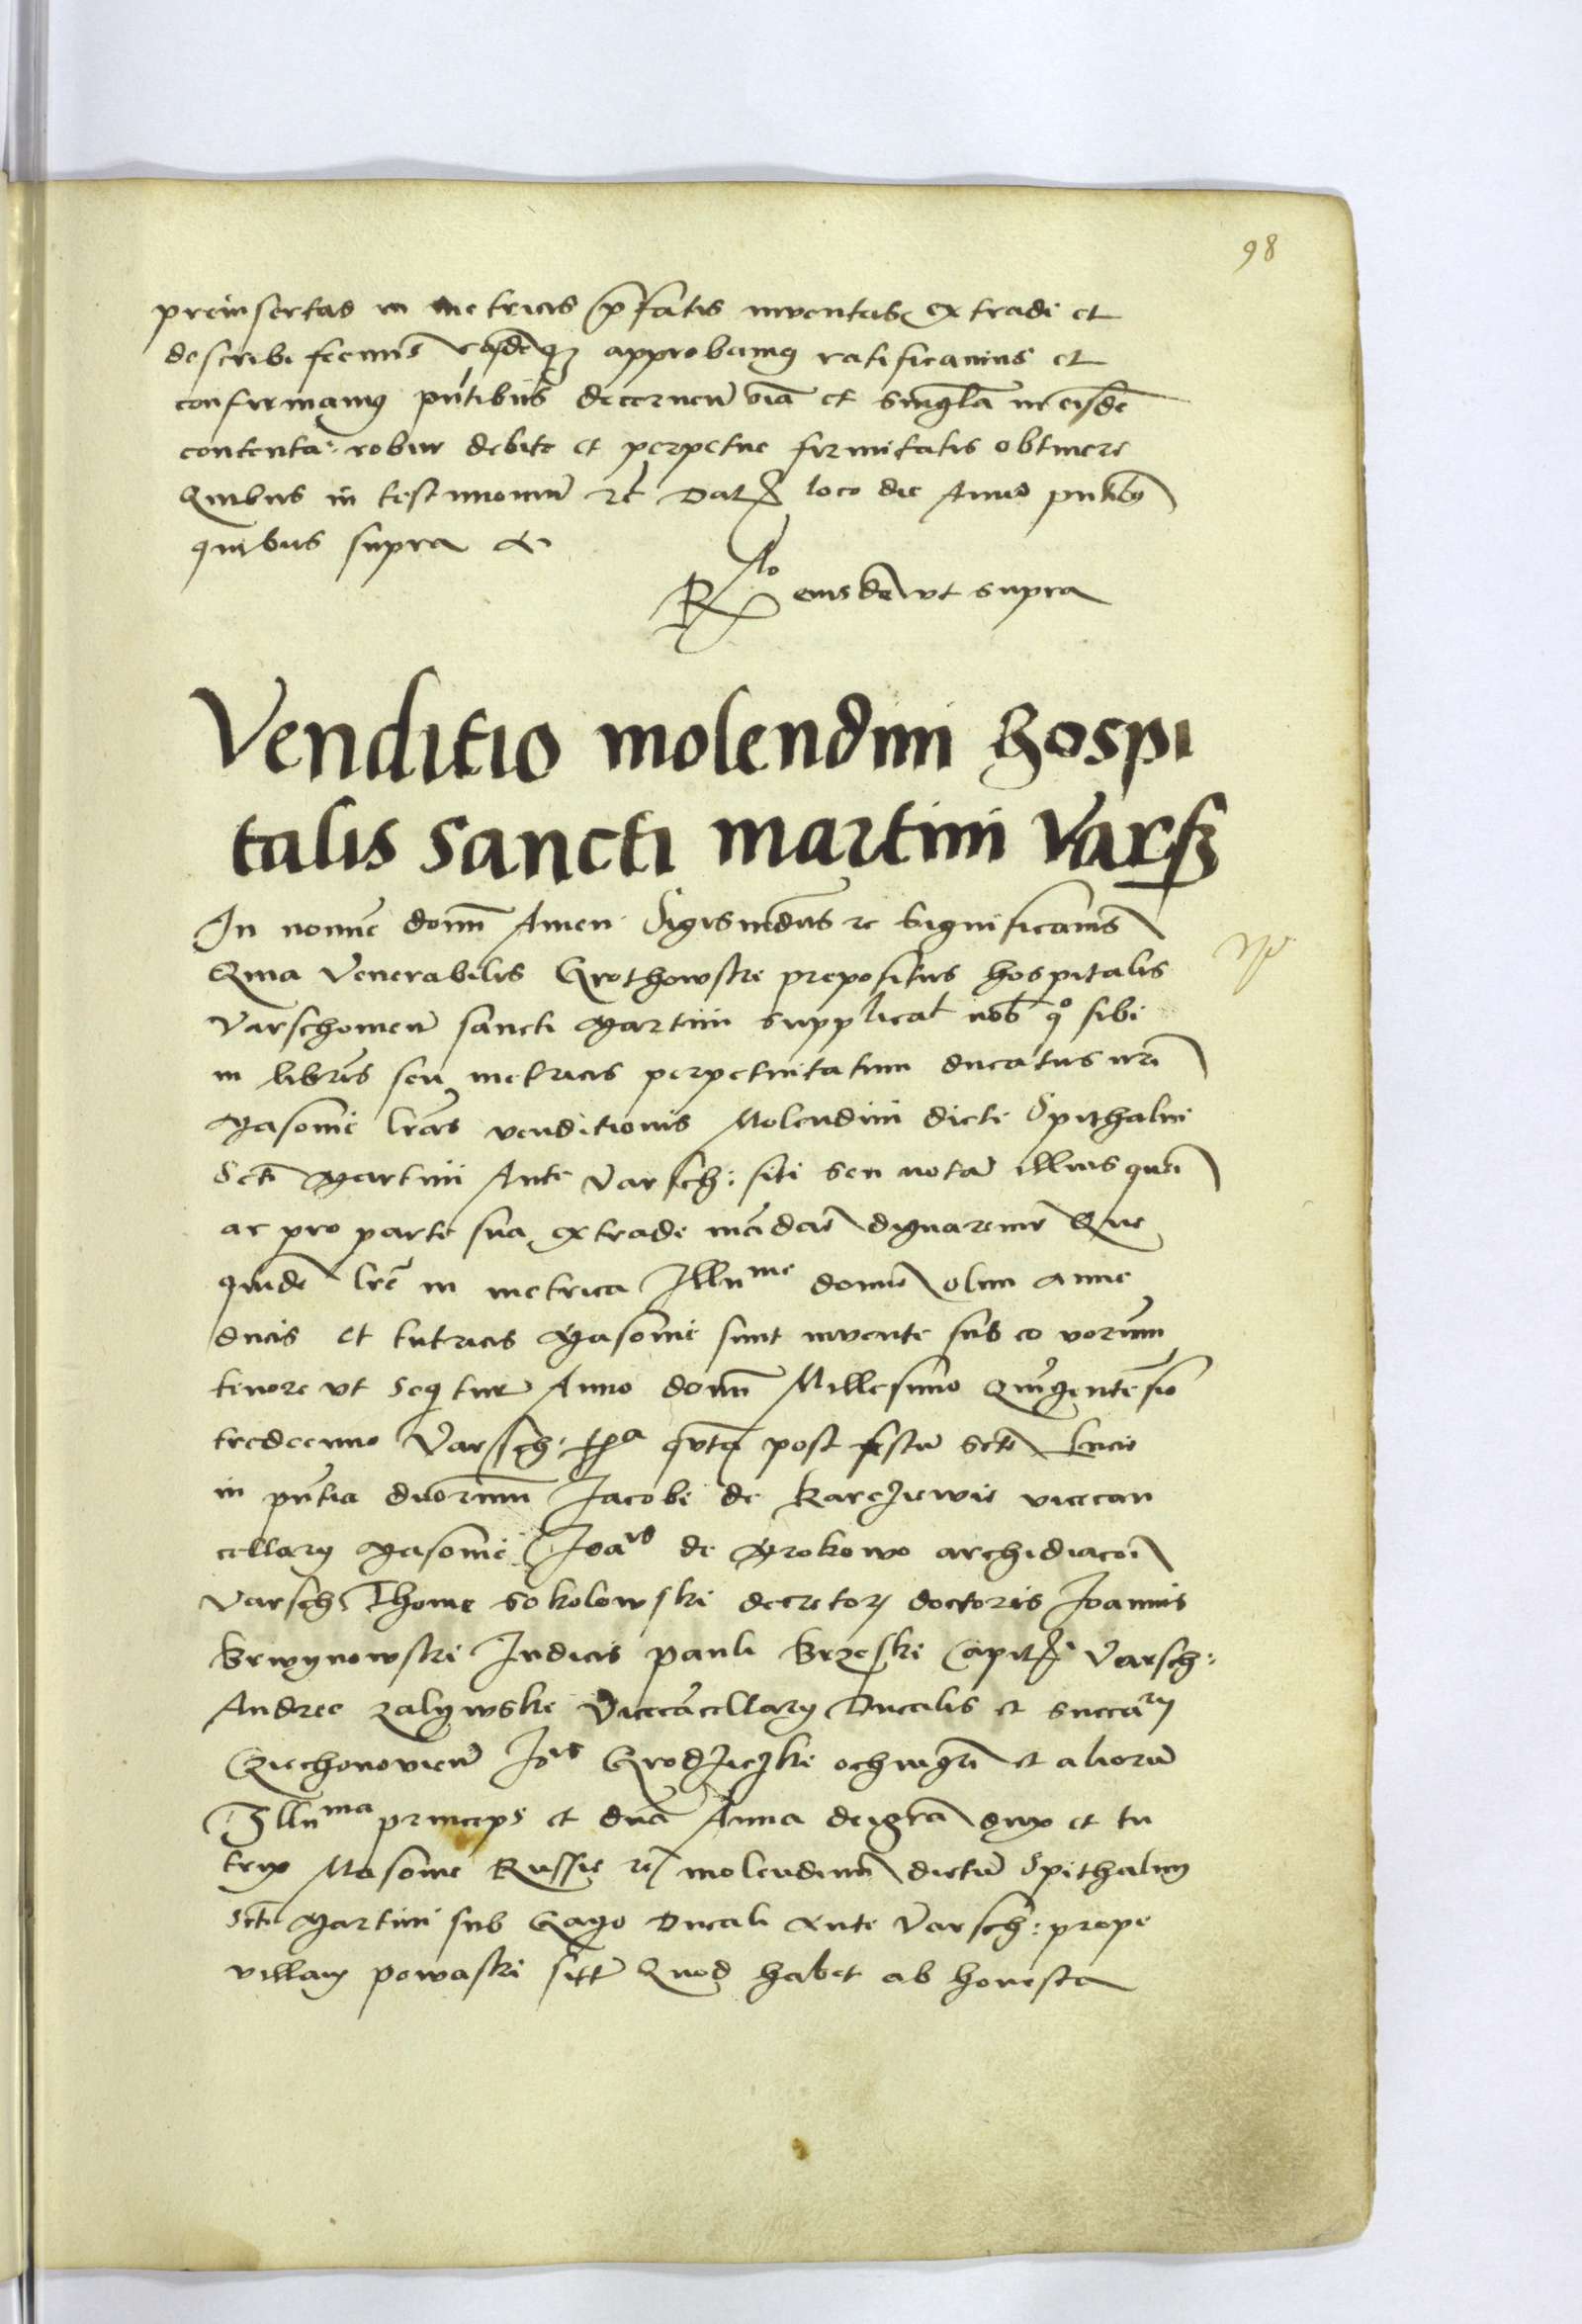 98
preinsertas in metricis p̄fatis inventas extradi et
describi fecim̄s easdēq3 approbamus ratificamus et
confirmamus pn̄tibus decernen̄ oīa et singl̄a in eisdē
contenta robur debite et perpetue firmitatis obtinere
Quibus in testimoniū rc̄ Dat loco die Anno pn̄tibus
quibus supra
R^lo eiusdē ut supra
Venditio molendini hospi
talis sancti martini Vars3
In nomīe domī Amen Sigismūdus rc Significam̄s
Quia Venerabilis Grothowski prepositus hospitalis
Varschovien̄ sancti Martini supplicat nob̄ q° sibi
in libris seu metricis perpetuitatum ducatus nr̄i
Masovie lr̄as venditionis Molendini dicti Spithalni
Scti Martini Ante Varsch: siti seu notā illius
ac pro parte sua extradi mādare dignaremur Que
quidē lrē in metrica Illu^me domīe olim Anne
ducis et tutricis Masovie sunt invente sub eo verborum
tenore ut seq̄tur Anno domī Millesimo Quīgentesīo
tredecimo Varsch: f^a qūta post festū scte Lucie
in pn̄tia dnorum Jacobi de Karczewie vicecan
cellary Masovie Joa^is de Mrokowo archidiacoī
Varsch Thome Sokolowski decretor̄ doctoris Joannis
Brwynowski Judicis Pauli Brzeski Capit Varsch:
Andree Zalywski Vicecācellary Ducalis et succa^ry
Cziechonovien̄ Jo^is Grodzieczki et aliorū
Illu^ma princeps et dn̄a Anna dei gr̄a dux et tu
trix Masovie Russie rc̄ molendinū dictū Spithalny
scti Martini sub Gayo Ducali Ante Varsch: prope
villam Powaski sitū Quod habet ab honesta